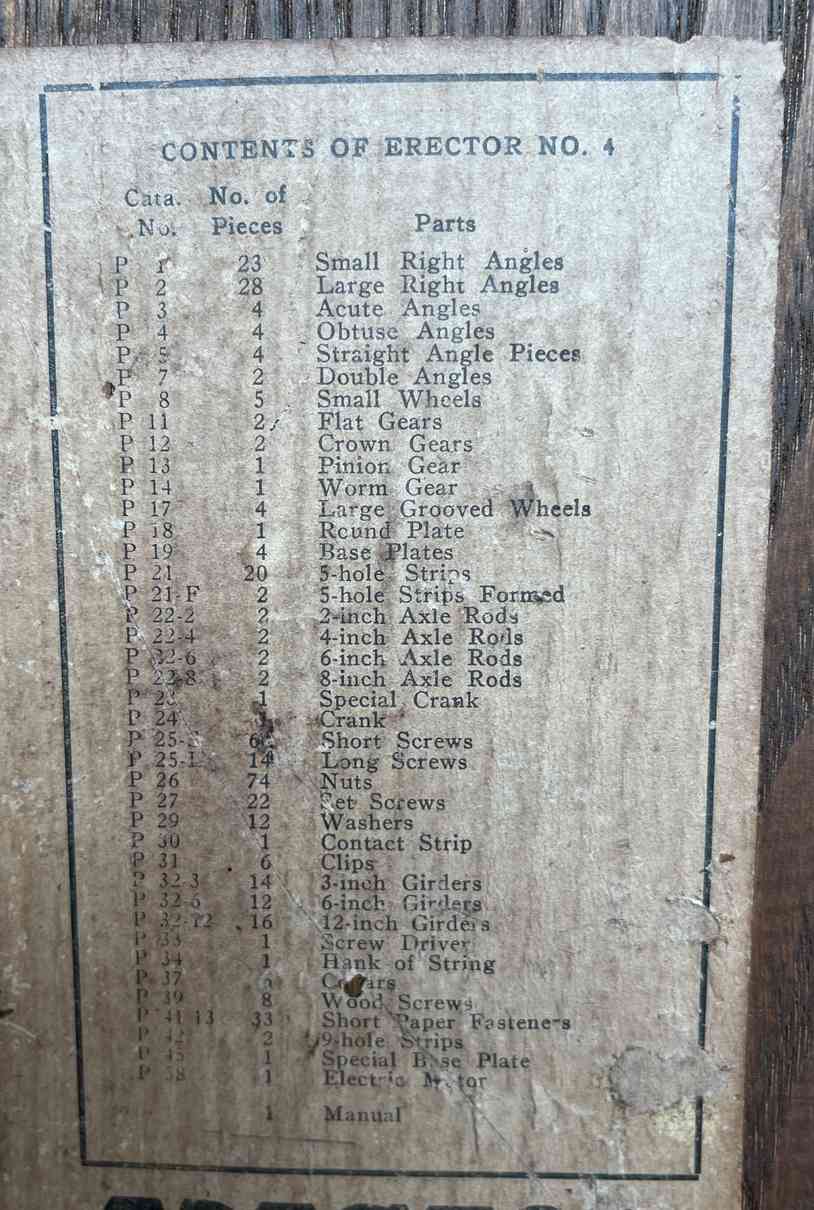 CONTENTS OF ERECTOR NO. 4
Cata. No. of
No. Pieces Parts
P 1 23 Small Right Angles
P 2 28 Large Right Angles
P 3 4 Acute Angles
P 4 4 Obtuse Angles
P 5 4 Straight Angle Pieces
P 7 2 Double Angles
P 8 5 Small Wheels
P 11 2 Flat Gears
P 12 2 Crown Gears
P 13 1 Pinion Gear
P 14 1 Worm Gear
P 17 4 Large Grooved Wheels
P 18 1 Round Plate
P 19 4 Base Plates
P 21 20 5-hole Strips
P 21-F 2 5-hole Strips Formed
P 22-2 2 2-inch Axle Rods
P 22-4 2 4-inch Axle Rods
P 22-6 2 6-inch Axle Rods
P 22-8 2 8-inch Axle Rods
P 23 1 Special Crank
P 24 1 Crank
P 25-S Short Screws
P 25-L 14 Long Screws
P 26 74 Nuts
P 27 22 Set Screws
P 29 12 Washers
P 30 1 Contact Strip
P 31 6 Clips
P 32-3 14 3-inch Girders
P 32-6 12 6-inch Girders
P 32-12 16 12-inch Girders
P 33 1 Screw Driver
P 34 1 Hank of String
P 37 Collars
P 39 8 Wood Screws
P 41-13 33 Short Paper Fasteners
P 2 9-hole Strips
P 45 1 Special Base Plate
P 58 1 Electric Motor
1 Manual